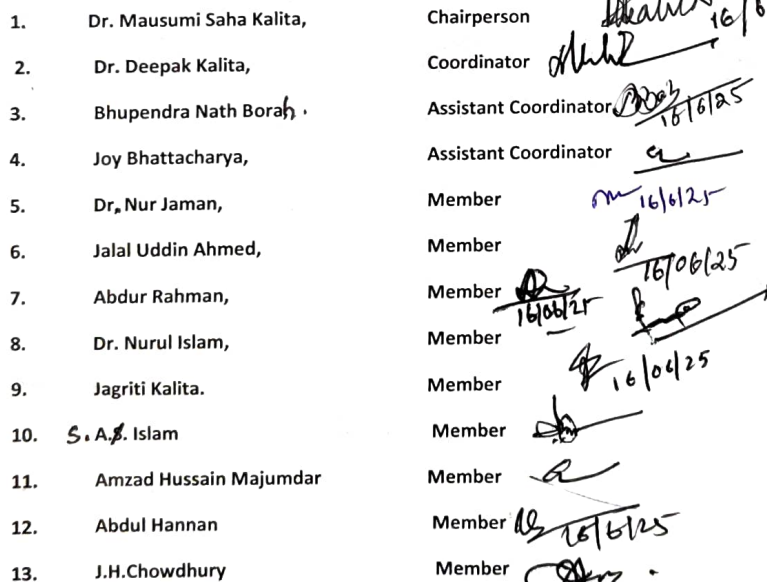 1. Dr. Mausumi Saha Kalita, Chairperson 16/6
2. Dr. Deepak Kalita, Coordinator
3. Bhupendra Nath Borah. Assistant Coordinator 16/6/25
4. Joy Bhattacharya, Assistant Coordinator
5. Dr. Nur Jaman, Member 16/6/25
6. Jalal Uddin Ahmed, Member 16/06/25
7. Abdur Rahman, Member 16/06/25
8. Dr. Nurul Islam, Member
9. Jagriti Kalita. Member 16/06/25
10. S. A. Islam Member
11. Amzad Hussain Majumdar Member
12. Abdul Hannan Member 16/6/25
13. J.H.Chowdhury Member